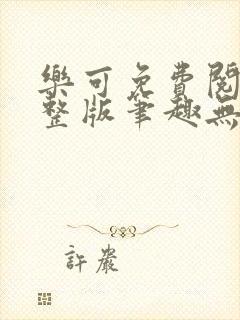 樂可免費閱
整版筆趣無
許嚴